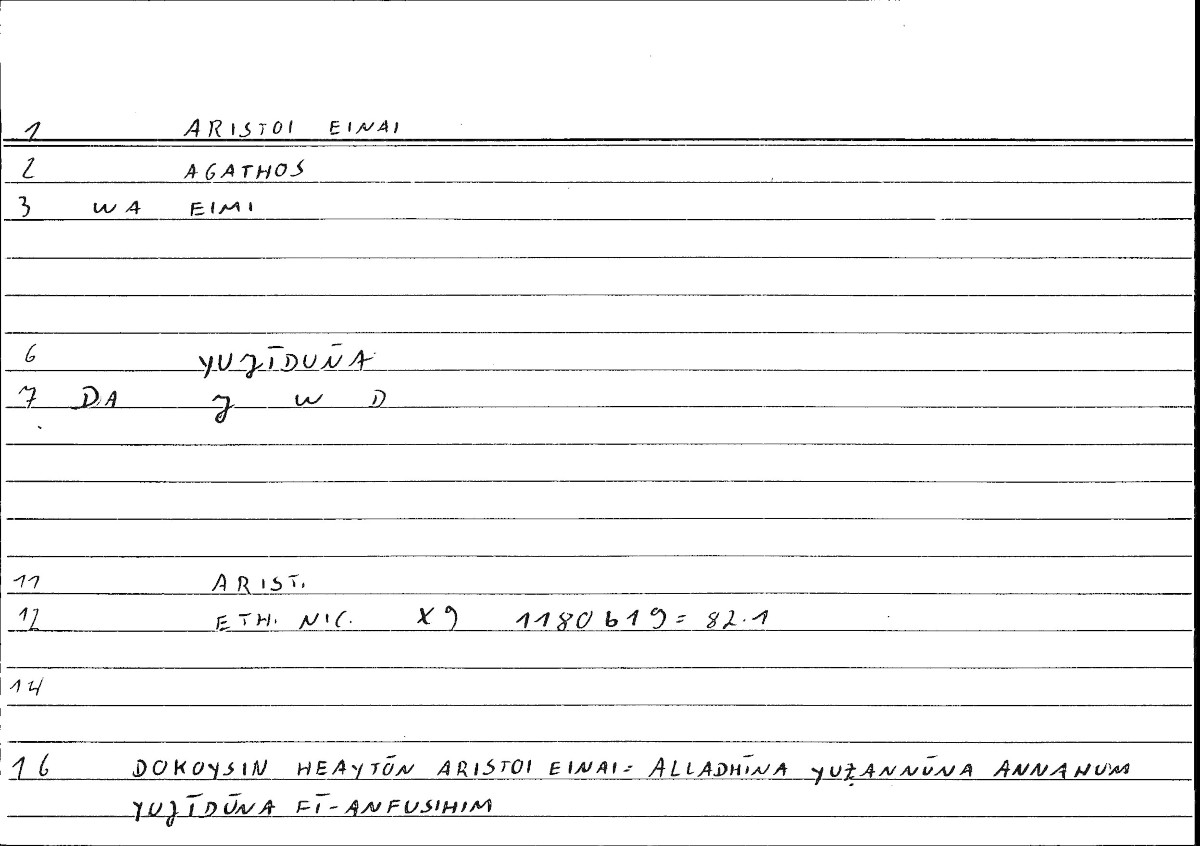 1 ARISTOI EINAI
2 AGATHOS
3 WA EIMI
6 YUJĪDUN̄A
7 DA J W D
11 ARIST.
12 ETH. NIC. X9 1180b19 = 82.1
14
16 DOKOYSIN HEAYTŌN ARISTOI EINAI = ALLADHĪNA YUẒANNŪNA ANNAHUM
YUJĪDŪNA FĪ-ANFUSIHIM